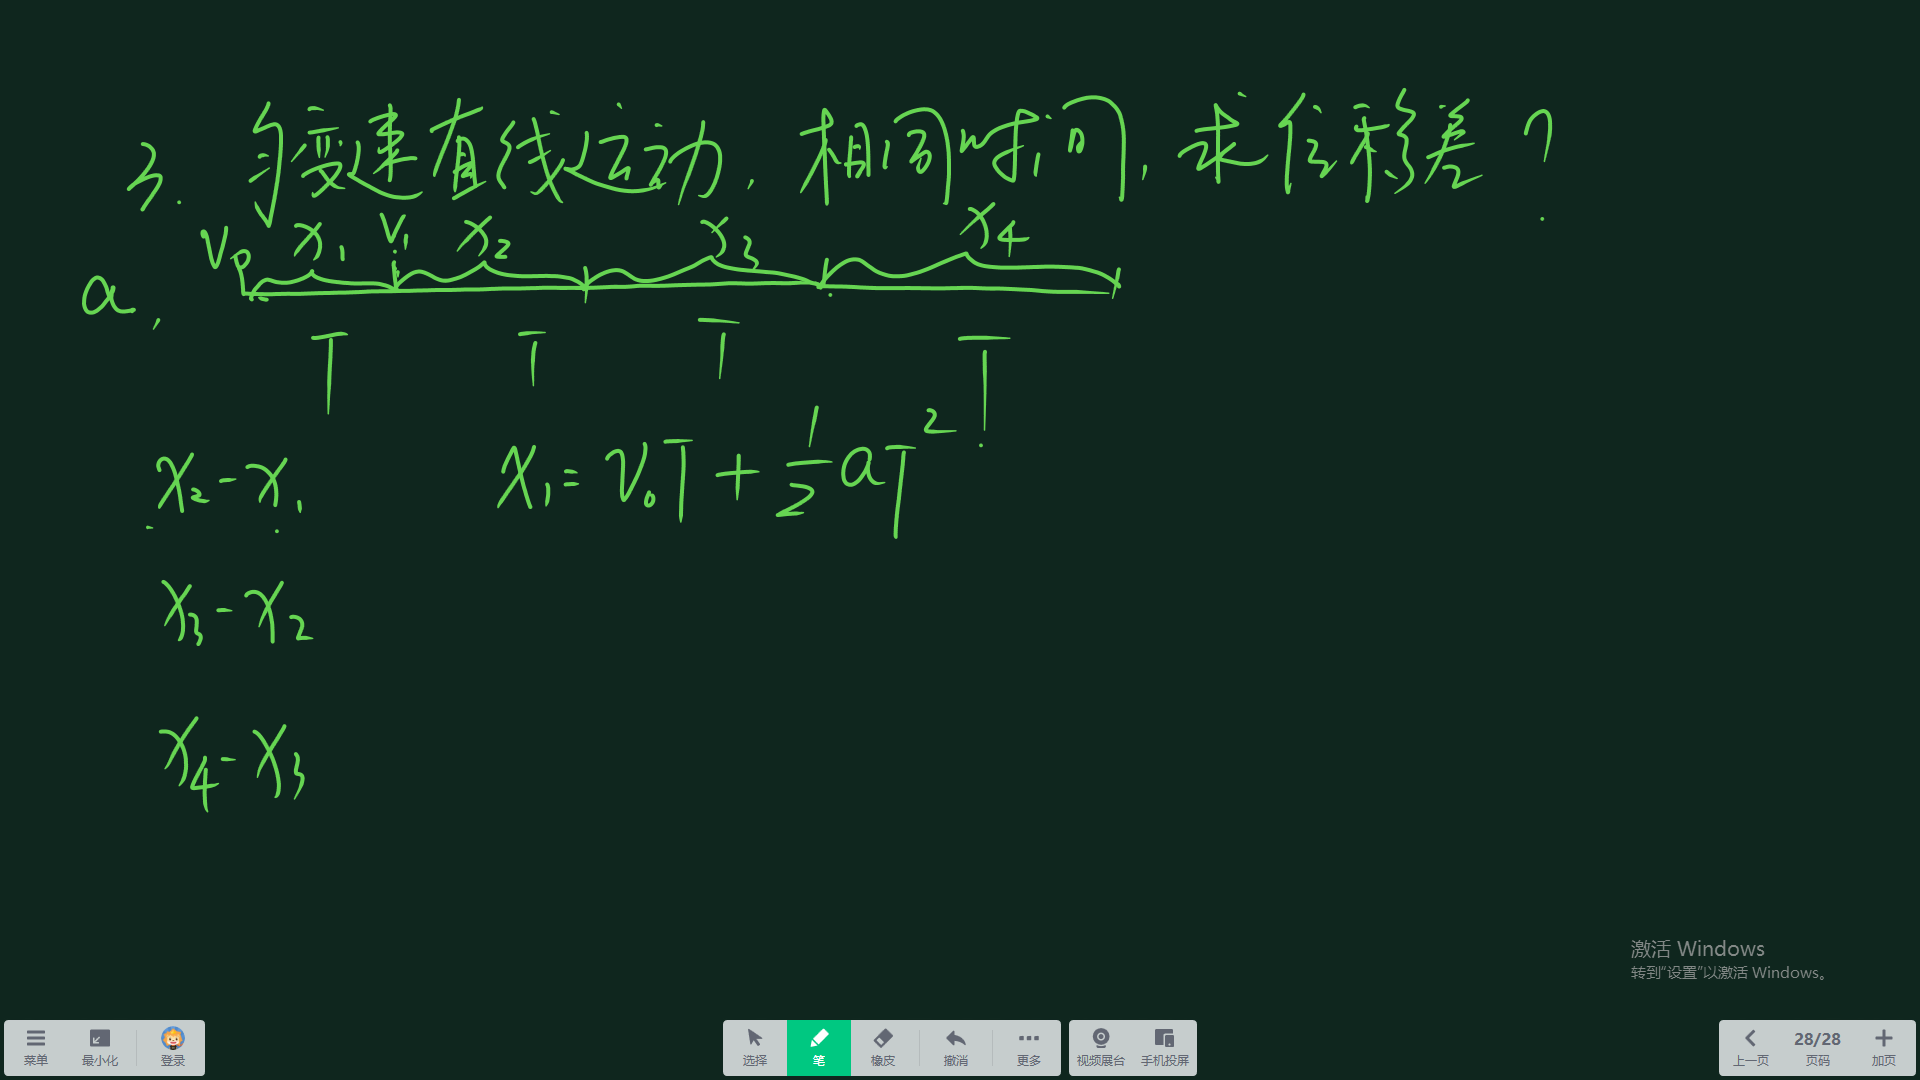 3. 匀变速直线运动, 相同时间, 求位移差?
V₀ x₁ V₁ x₂ x₃ x₄
a,
T T T T
x₂-x₁ x₁=v₀T+½aT²
x₃-x₂
x₄-x₃
激活 Windows
转到“设置”以激活 Windows。
菜单 最小化 登录 选择 笔 橡皮 撤消 更多 视频展台 手机投屏 上一页 28/28 页码 加页